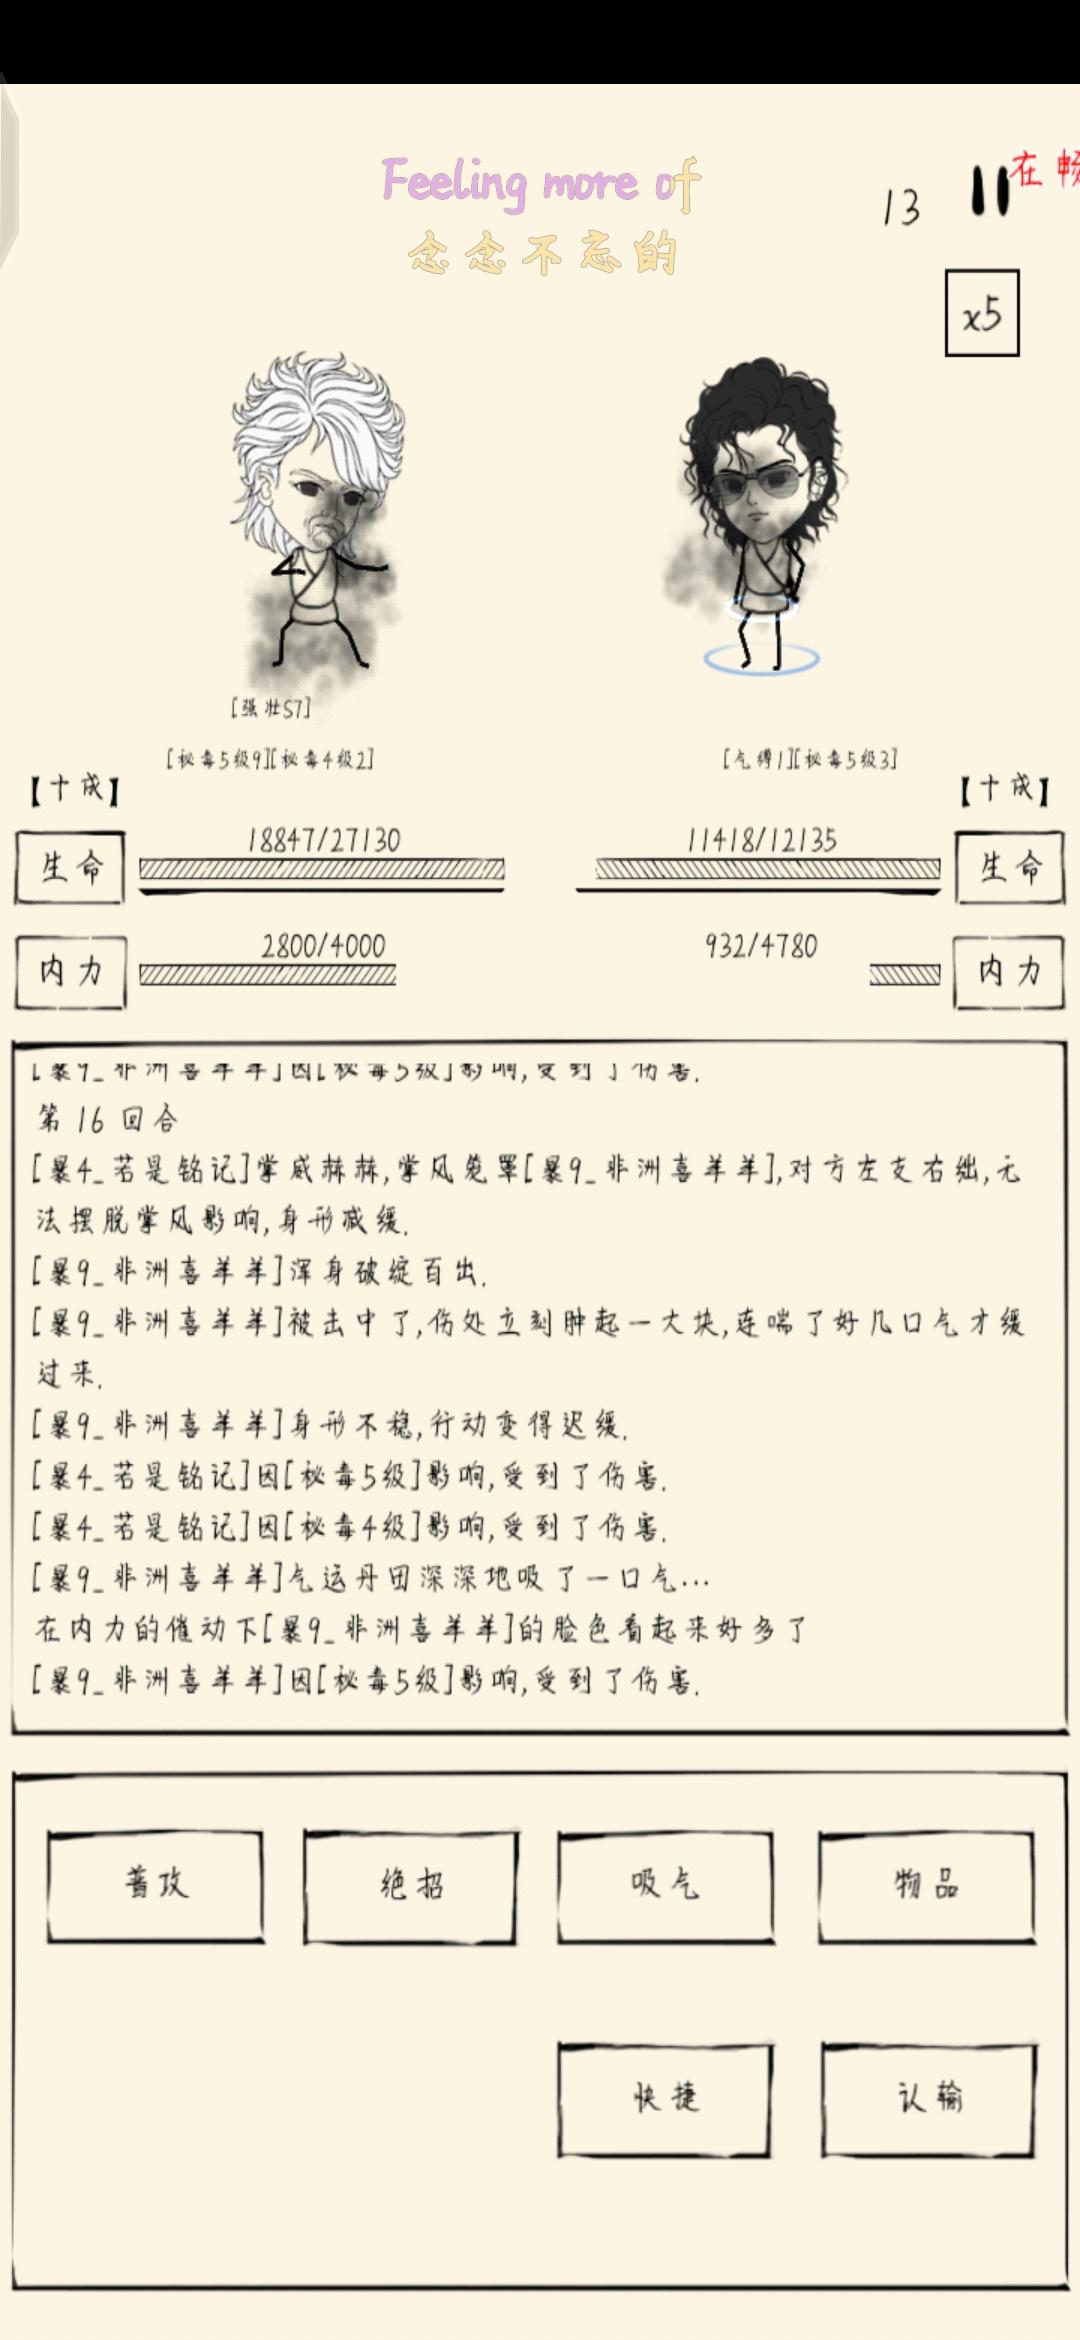 Feeling more of
念念不忘的
13
在畅
x5
[强壮57]
[秘毒5级9][秘毒4级2]
[气缚1][秘毒5级3]
【十成】
【十成】
生命
18847/27130
11418/12135
生命
内力
2800/4000
932/4780
内力
[暴9_非洲喜羊羊]因[秘毒5级]影响,受到了伤害.
第16回合
[暴4_若是铭记]掌威赫赫,掌风笼罩[暴9_非洲喜羊羊],对方左支右绌,无
法摆脱掌风影响,身形减缓.
[暴9_非洲喜羊羊]浑身破绽百出.
[暴9_非洲喜羊羊]被击中了,伤处立刻肿起一大块,连喘了好几口气才缓
过来.
[暴9_非洲喜羊羊]身形不稳,行动变得迟缓.
[暴4_若是铭记]因[秘毒5级]影响,受到了伤害.
[暴4_若是铭记]因[秘毒4级]影响,受到了伤害.
[暴9_非洲喜羊羊]气运丹田深深地吸了一口气...
在内力的催动下[暴9_非洲喜羊羊]的脸色看起来好多了
[暴9_非洲喜羊羊]因[秘毒5级]影响,受到了伤害.
普攻
绝招
吸气
物品
快捷
认输